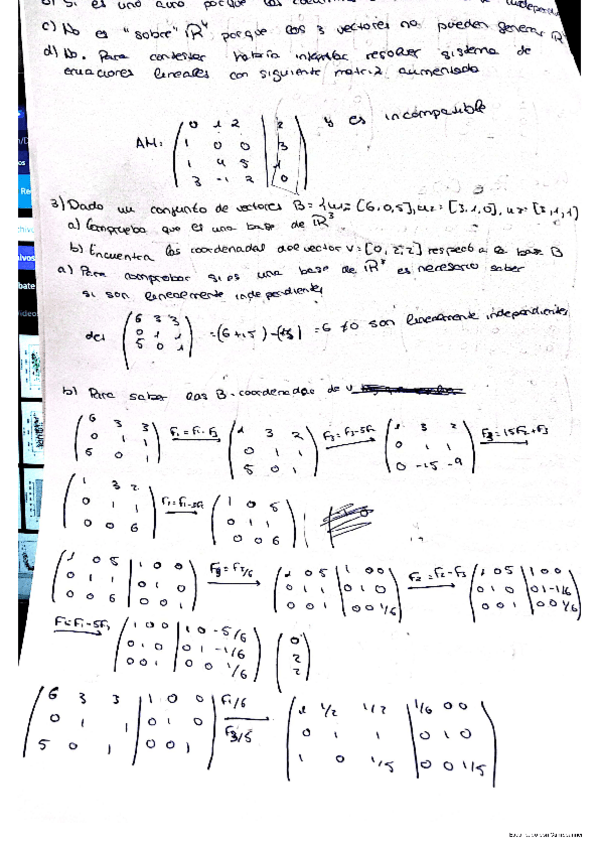 c) No es "sobre" ℝ⁴ porque los 3 vectores no pueden generar ℝ
d) No. Para contestar habría intentar resolver sistema de
ecuaciones lineales con siguiente matriz aumentada
AM = ( 0 1 2 | 2
1 0 0 | 3
1 4 5 | 1
3 -1 2 | 0 ) y es incompatible
3) Dado un conjunto de vectores B = {u₁ = [6,0,5], u₂ = [3,1,0], u₃ = [3,1,1]
a) Comprueba que es una base de ℝ³
b) Encuentra las coordenadas del vector v = [0,2,2] respecto a la base B
a) Para comprobar si es una base de ℝ³ es necesario saber
si son linealmente independientes
det ( 6 3 3
0 1 1
5 0 1 ) = (6+15) - (15) = 6 ≠ 0 son linealmente independientes
b) Para saber las B-coordenadas de v
( 6 3 3
0 1 1
5 0 1 ) F₁=F₁-F₃ ( 1 3 2
0 1 1
5 0 1 ) F₃=F₃-5F₁ ( 1 3 2
0 1 1
0 -15 -9 ) F₃=15F₂+F₃
( 1 3 2
0 1 1
0 0 6 ) ( 1 0 5
0 1 1
0 0 6 )
( 1 0 5 | 1 0 0
0 1 1 | 0 1 0
0 0 6 | 0 0 1 ) F₃=F₃/6 ( 1 0 5 | 1 0 0
0 1 1 | 0 1 0
0 0 1 | 0 0 1/6 ) F₂=F₂-F₃ ( 1 0 5 | 1 0 0
0 1 0 | 0 1 -1/6
0 0 1 | 0 0 1/6 )
F₁=F₁-5F₃ ( 1 0 0 | 1 0 -5/6
0 1 0 | 0 1 -1/6
0 0 1 | 0 0 1/6 ) ( 0
2
2 )
( 6 3 3 | 1 0 0
0 1 1 | 0 1 0
5 0 1 | 0 0 1 ) F₁/6 F₃/5 ( 1 1/2 1/2 | 1/6 0 0
0 1 1 | 0 1 0
1 0 1/5 | 0 0 1/5 )